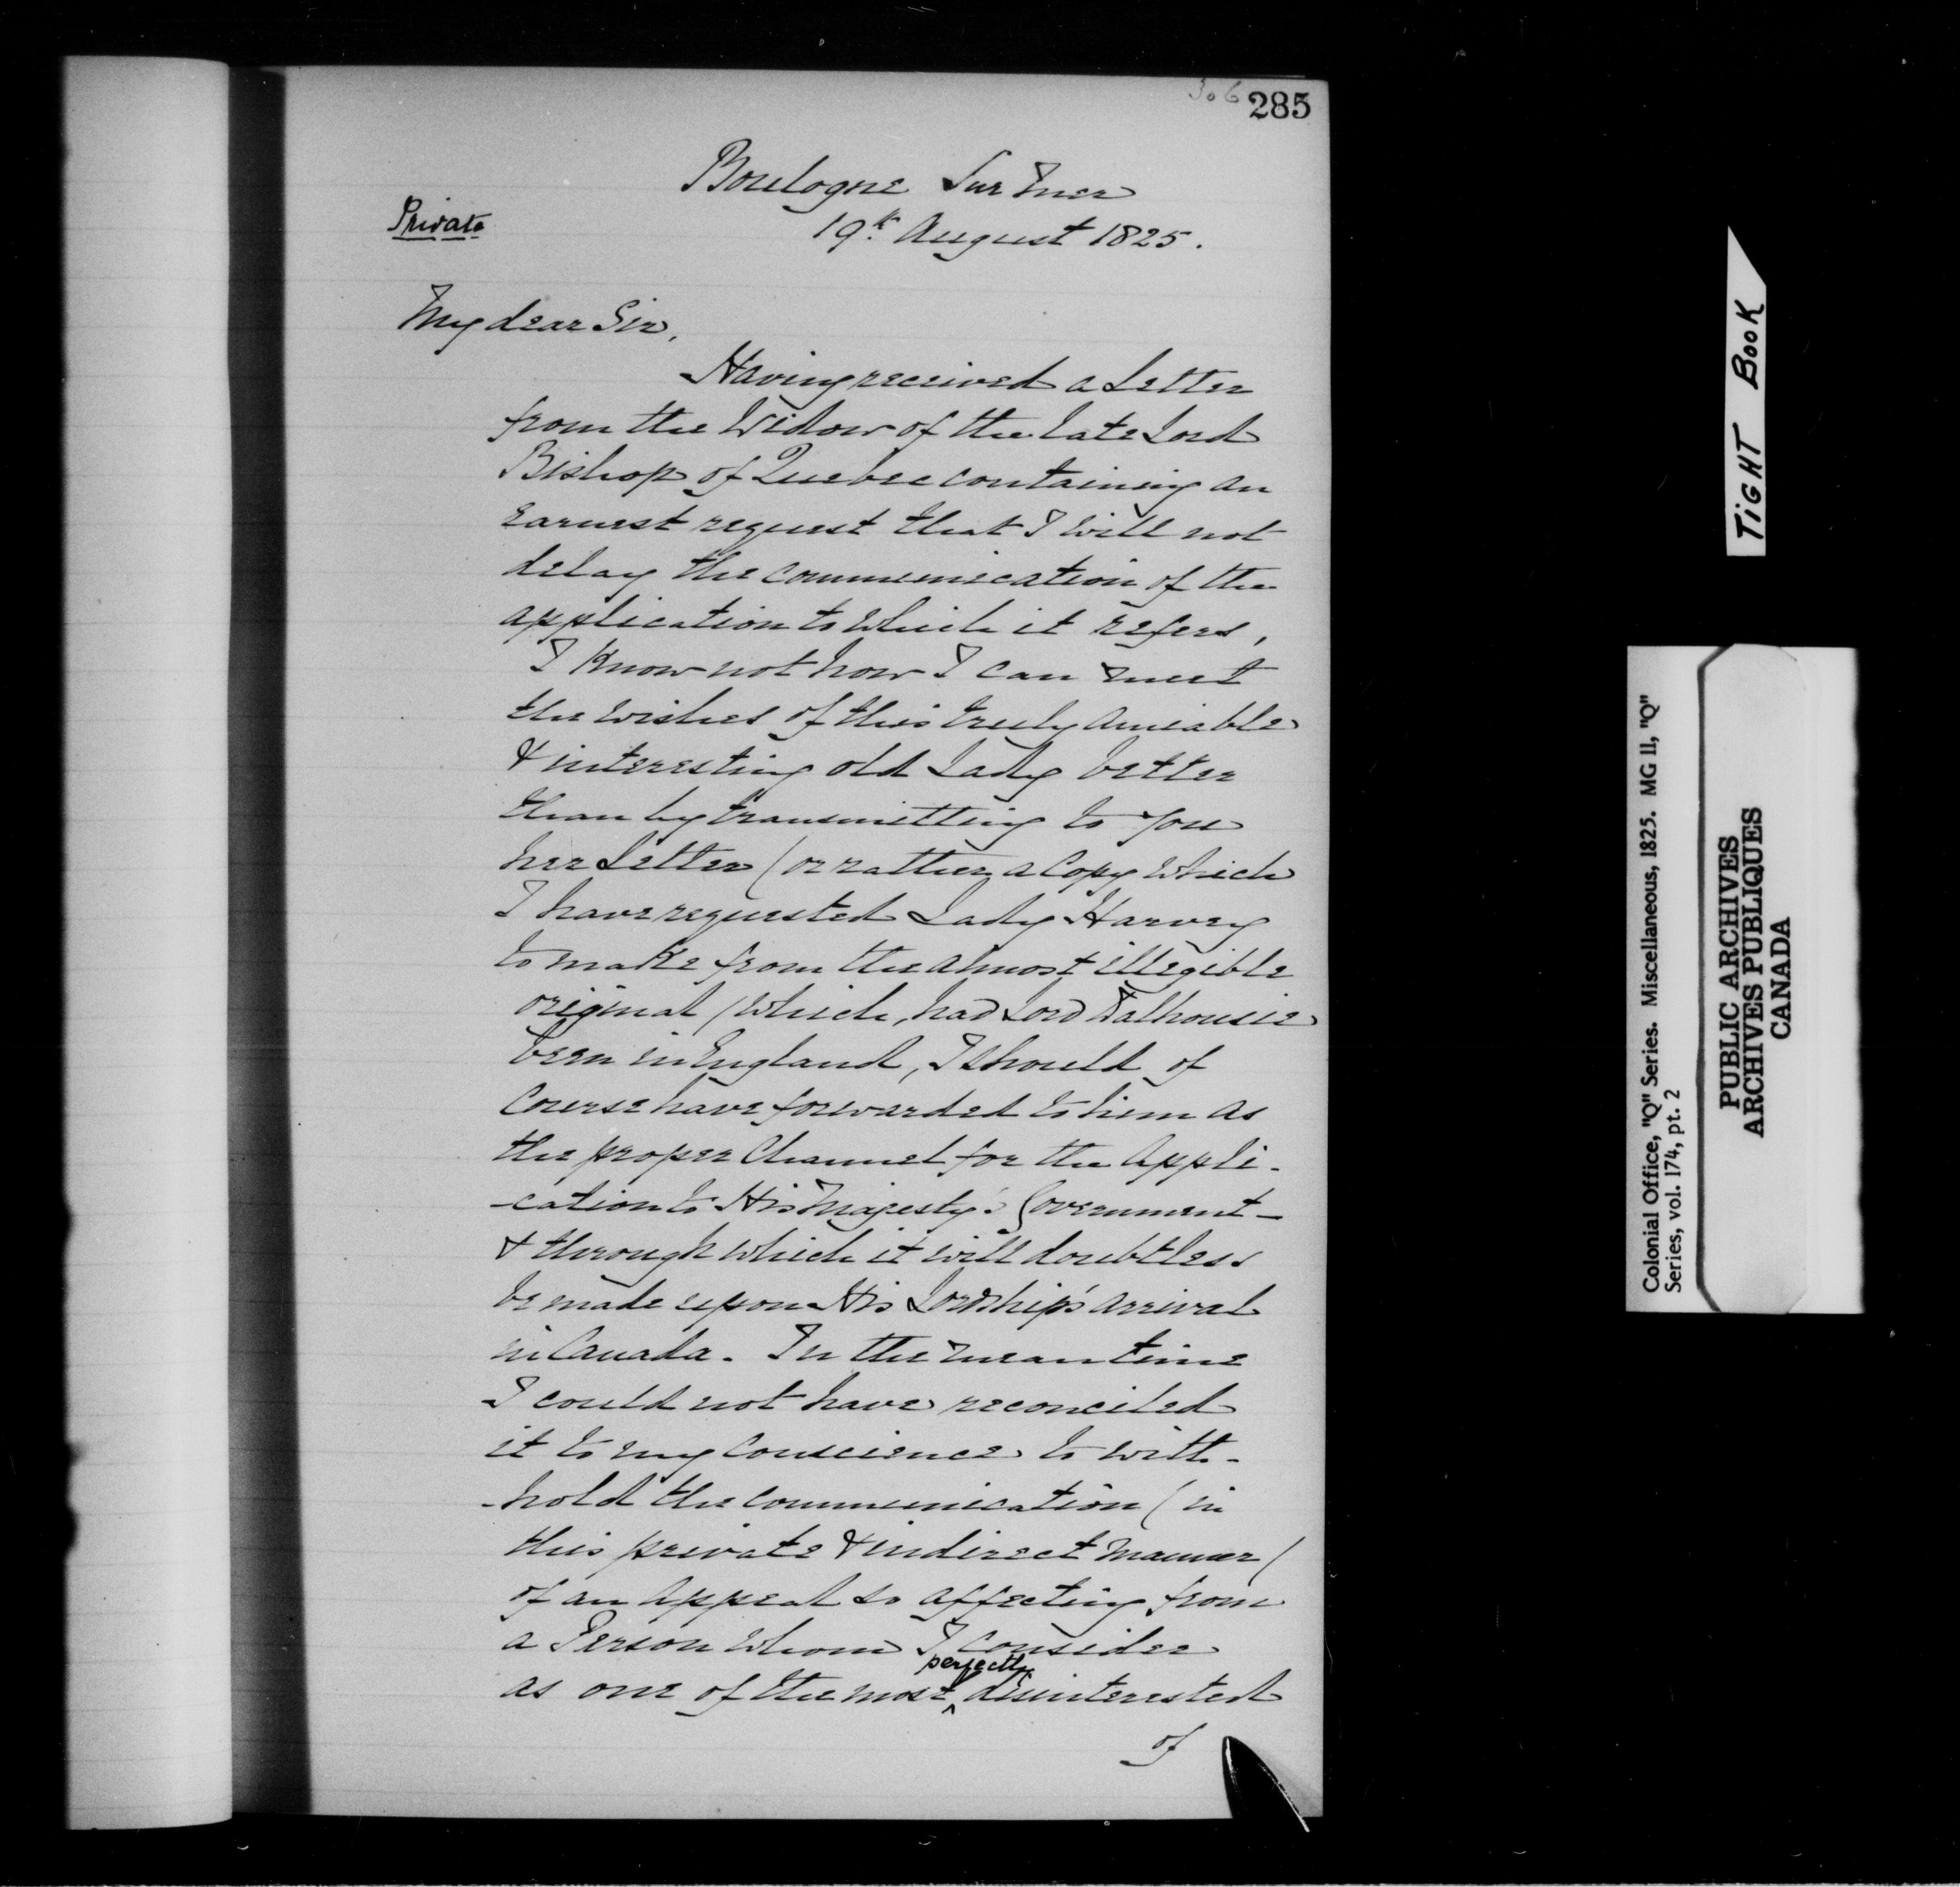 306 285
Boulogne Sur Mer
Private
19th August 1825.
My dear Sir,
Having received a Letter
from the Widow of the late Lord
Bishop of Quebec containing an
earnest request that I will not
delay the communication of the
application to which it refers,
I know not how I can meet
the wishes of this truly amiable
& interesting old Lady better
than by transmitting to you
her Letter (or rather a Copy which
I have requested Lady Harvey
to make from the almost illegible
original (which, had Lord Dalhousie
been in England, I should of
Course have forwarded to him as
the proper Channel for the Appli-
-cation to His Majesty's Government -
& through which it will doubtless
be made upon His Lordship's arrival
in Canada. In the mean time
I could not have reconciled
it to my Conscience to with-
-hold the Communication (in
this private & indirect manner)
of an Appeal so affecting from
a Person whom I consider
as one of the most perfectly disinterested
of
TIGHT BOOK
Colonial Office, "Q" Series. Miscellaneous, 1825. MG 11, "Q"
Series, vol. 174, pt. 2
PUBLIC ARCHIVES
ARCHIVES PUBLIQUES
CANADA